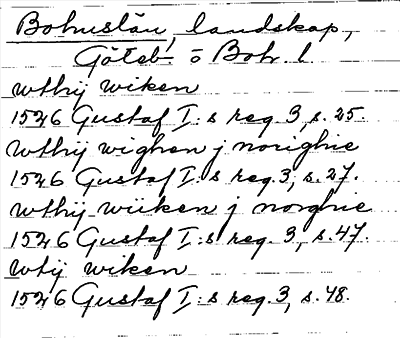 Bohuslän, landskap,
Göteb o Boh. l
wthij wiken
1526 Gustaf I:s reg. 3, s. 25.
wthij wighen j norighie
1526 Gustaf I:s reg. 3, s. 27.
wthij wiiken j norghie
1526 Gustaf I:s reg. 3, s. 47.
wtij wiken
1526 Gustaf I:s reg. 3, s. 48.